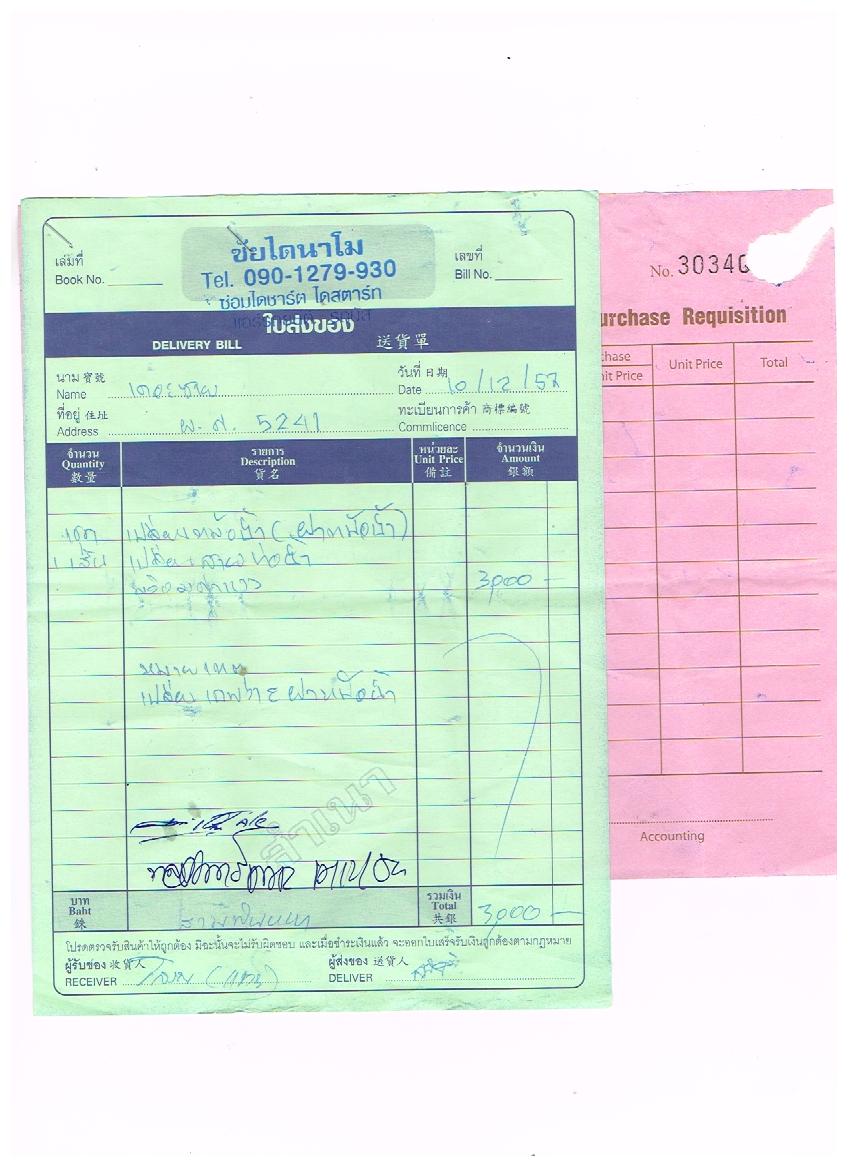 ชัยไดนาโม
Tel. 090-1279-930
ซ่อมไดชาร์ต ไดสตาร์ท
เล่มที่
Book No.
เลขที่
Bill No.
ใบส่งของ
DELIVERY BILL 送貨單
นาม 寶號
Name
วันที่ 日期
Date 10/12/57
ที่อยู่ 住址
Address 5241
ทะเบียนการค้า 商標編號
Commlicence
จำนวน Quantity 數量
รายการ Description 貨名
หน่วยละ Unit Price 備註
จำนวนเงิน Amount 銀額
เปลี่ยนหม้อน้ำ (ฝาหม้อน้ำ)
1 เส้น เปลี่ยนสายท่อน้ำ
3,000 -
หมายเหตุ
เปลี่ยน ฝาหม้อน้ำ
สำเนา
บาท Baht 銖
สามพันบาท
รวมเงิน Total 共銀
3,000 -
โปรดตรวจรับสินค้าให้ถูกต้อง มิฉะนั้นจะไม่รับผิดชอบ และเมื่อชำระเงินแล้ว จะออกใบเสร็จรับเงินถูกต้องตามกฎหมาย
ผู้รับของ 收貨人
RECEIVER
ผู้ส่งของ 送貨人
DELIVER
No. 3034
urchase Requisition
chase
it Price
Unit Price
Total
Accounting